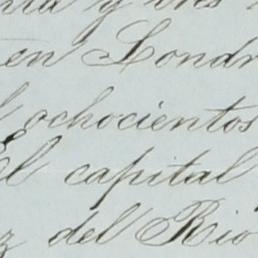 y tres
en Londr
ochocientos
El capital
del Rio